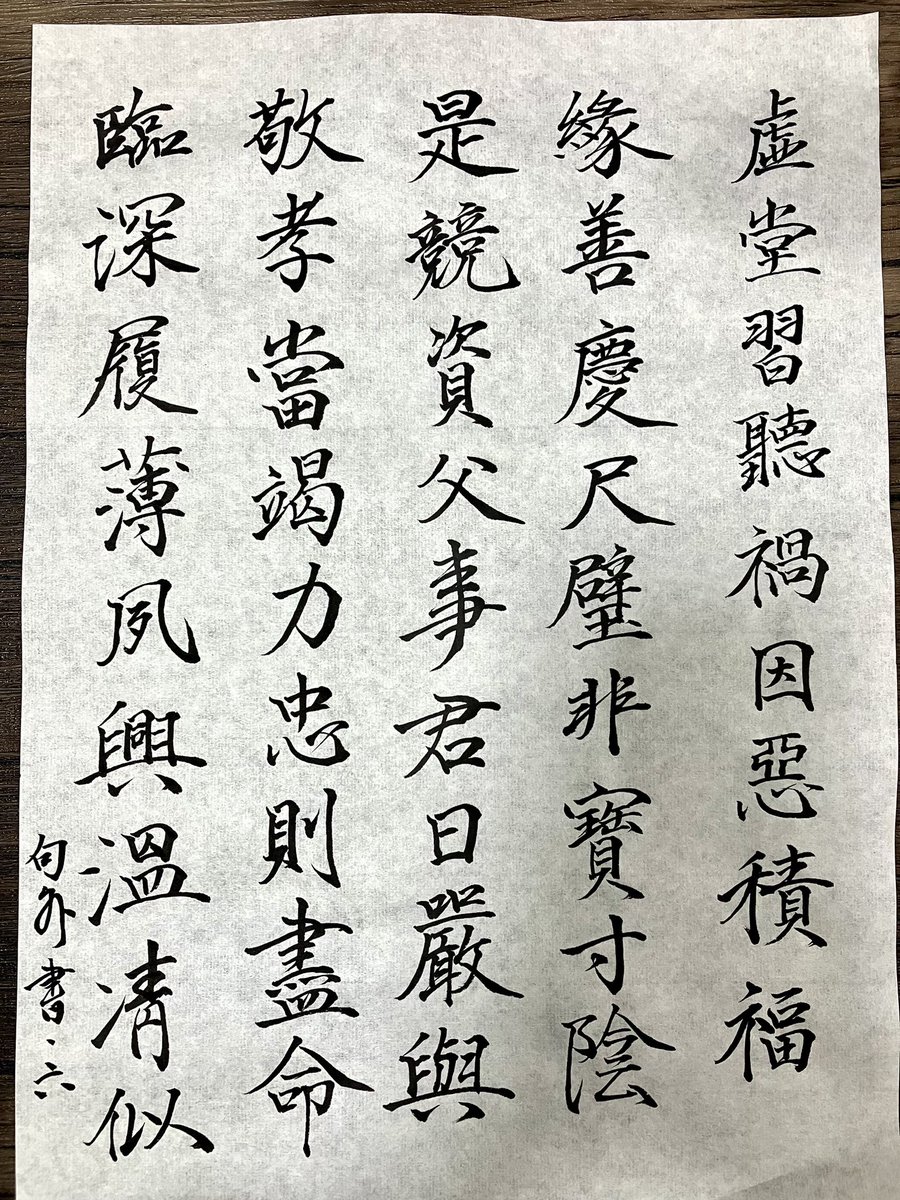 虚堂習聽禍因惡積福
緣善慶尺璧非寶寸陰
是競資父事君日嚴與
敬孝當竭力忠則盡命
臨深履薄夙興溫凊似
句外書·六